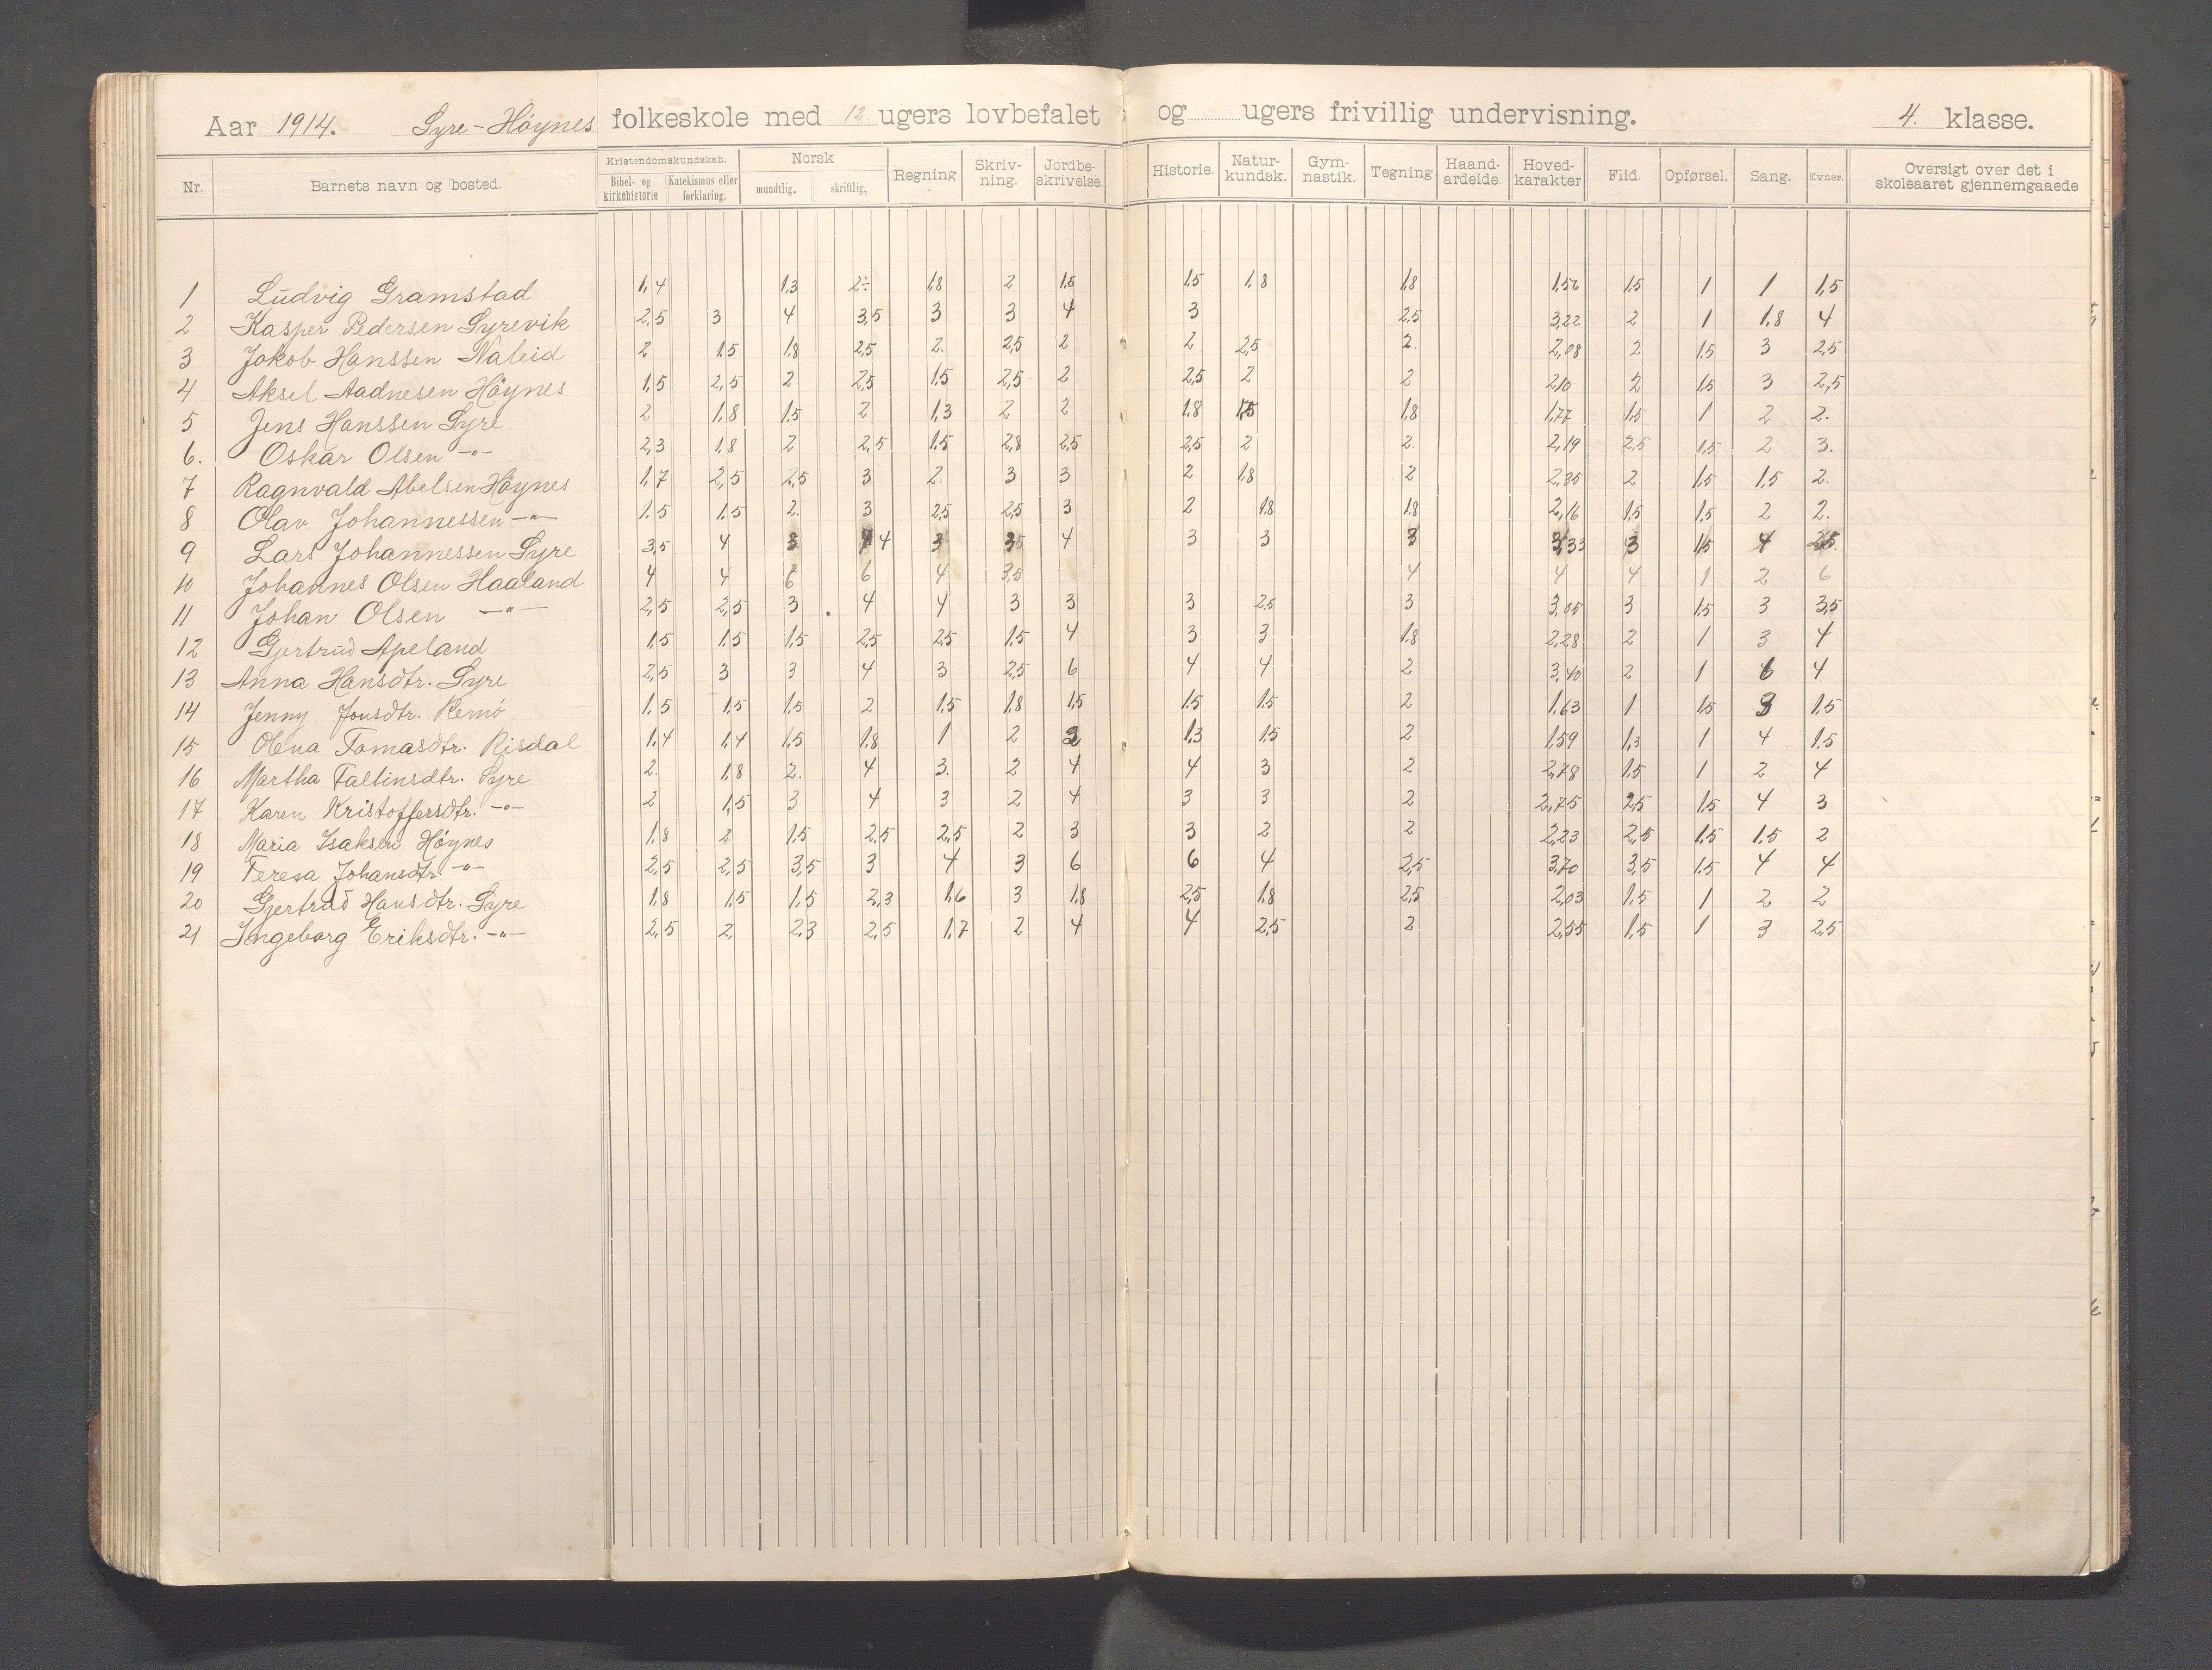 Aar 1914. Syre-Høynes folkeskole med 12 ugers lovbefalet og ugers frivillig undervisning. 4. klasse.
Nr. Barnets navn og bosted. Kristendomskundskab. Bibel- og kirkehistorie Katekismus eller forklaring. Norsk mundtlig. skriftlig, Regning Skriv-ning. Jordbe-skrivelse. Historie. Natur-kundsk. Gym-nastik. Tegning Haand-arbeide. Hoved-karakter Flid. Opførsel. Sang. Evner. Oversigt over det i skoleaaret gjennemgaaede
1 Ludvig Gramstad 1,4 1,3 2÷ 1,8 2 1,5 1,5 1,8 1,8 1,56 1,5 1 1 1,5
2 Kasper Pedersen Syrevik 2,5 3 4 3,5 3 3 4 3 2,5 3,22 2 1 1,8 4
3 Jokob Hanssen Naleid 2 1,5 1,8 2,5 2. 2,5 2 2 2,5 2. 2,08 2 1,5 3 2,5
4 Aksel Aadnesen Høynes 1,5 2,5 2 2,5 1,5 2,5 2 2,5 2 2 2,10 2 1,5 3 2,5
5 Jens Hanssen Syre 2 1,8 1,5 2 1,3 2 2 1,8 1,5 1,8 1,77 1,5 1 2 2.
6. Oskar Olsen -"- 2,3 1,8 2 2,5 1,5 2,8 2,5 2,5 2 2. 2,19 2,5 1,5 2 3.
7 Ragnvald Abelsen Høynes 1,7 2,5 2,5 3 2. 3 3 2 1,8 2 2,35 2 1,5 1,5 2.
8 Olav Johannessen -"- 1,5 1,5 2. 3 2,5 2,5 3 2 1,8 1,8 2,16 1,5 1,5 2 2.
9 Lars Johannessen Syre 3,5 4 3 4 3 3,5 4 3 3 3 3,33 3 1,5 4 2,5.
10 Johannes Olsen Haaland 4 4 6 6 4 3,5 4 4 4 1 2 6
11 Johan Olsen -"- 2,5 2,5 3 . 4 4 3 3 3 2,5 3 3,05 3 1,5 3 3,5
12 Gjertrud Apeland 1,5 1,5 1,5 2,5 2,5 1,5 4 3 3 1,8 2,28 2 1 3 4
13 Anna Hansdtr. Syre 2,5 3 3 4 3 2,5 6 4 4 2 3,40 2 1 6 4
14 Jenny Jonsdtr. Remø 1,5 1,5 1,5 2 1,5 1,8 1,5 1,5 1,5 2 1,63 1 1,5 3 1,5
15 Olena Tomasdtr. Risdal 1,4 1,4 1,5 1,8 1 2 2 1,3 1,5 2 1,59 1,3 1 4 1,5
16 Martha Faltinsdtr. Syre 2. 1,8 2. 4 3. 2 4 4 3 2 2,78 1,5 1 2 4
17 Karen Kristoffersdtr. -"- 2 1,5 3 4 3 2 4 3 3 2 2,75 2,5 1,5 4 3
18 Maria Isaksen Høynes 1,8 2 1,5 2,5 2,5 2 3 3 2 2 2,23 2,5 1,5 1,5 2
19 Teresa Johansdtr. -"- 2,5 2,5 3,5 3 4 3 6 6 4 2,5 3,70 3,5 1,5 4 4
20 Gjertrud Hansdtr. Syre 1,8 1,5 1,5 2,3 1,6 3 1,8 2,5 1,8 2,5 2,03 1,5 1 2 2
21 Ingeborg Eriksdtr. -"- 2,5 2, 2,3 2,5 1,7 2 4 4 2,5 2 2,55 1,5 1 3 2,5